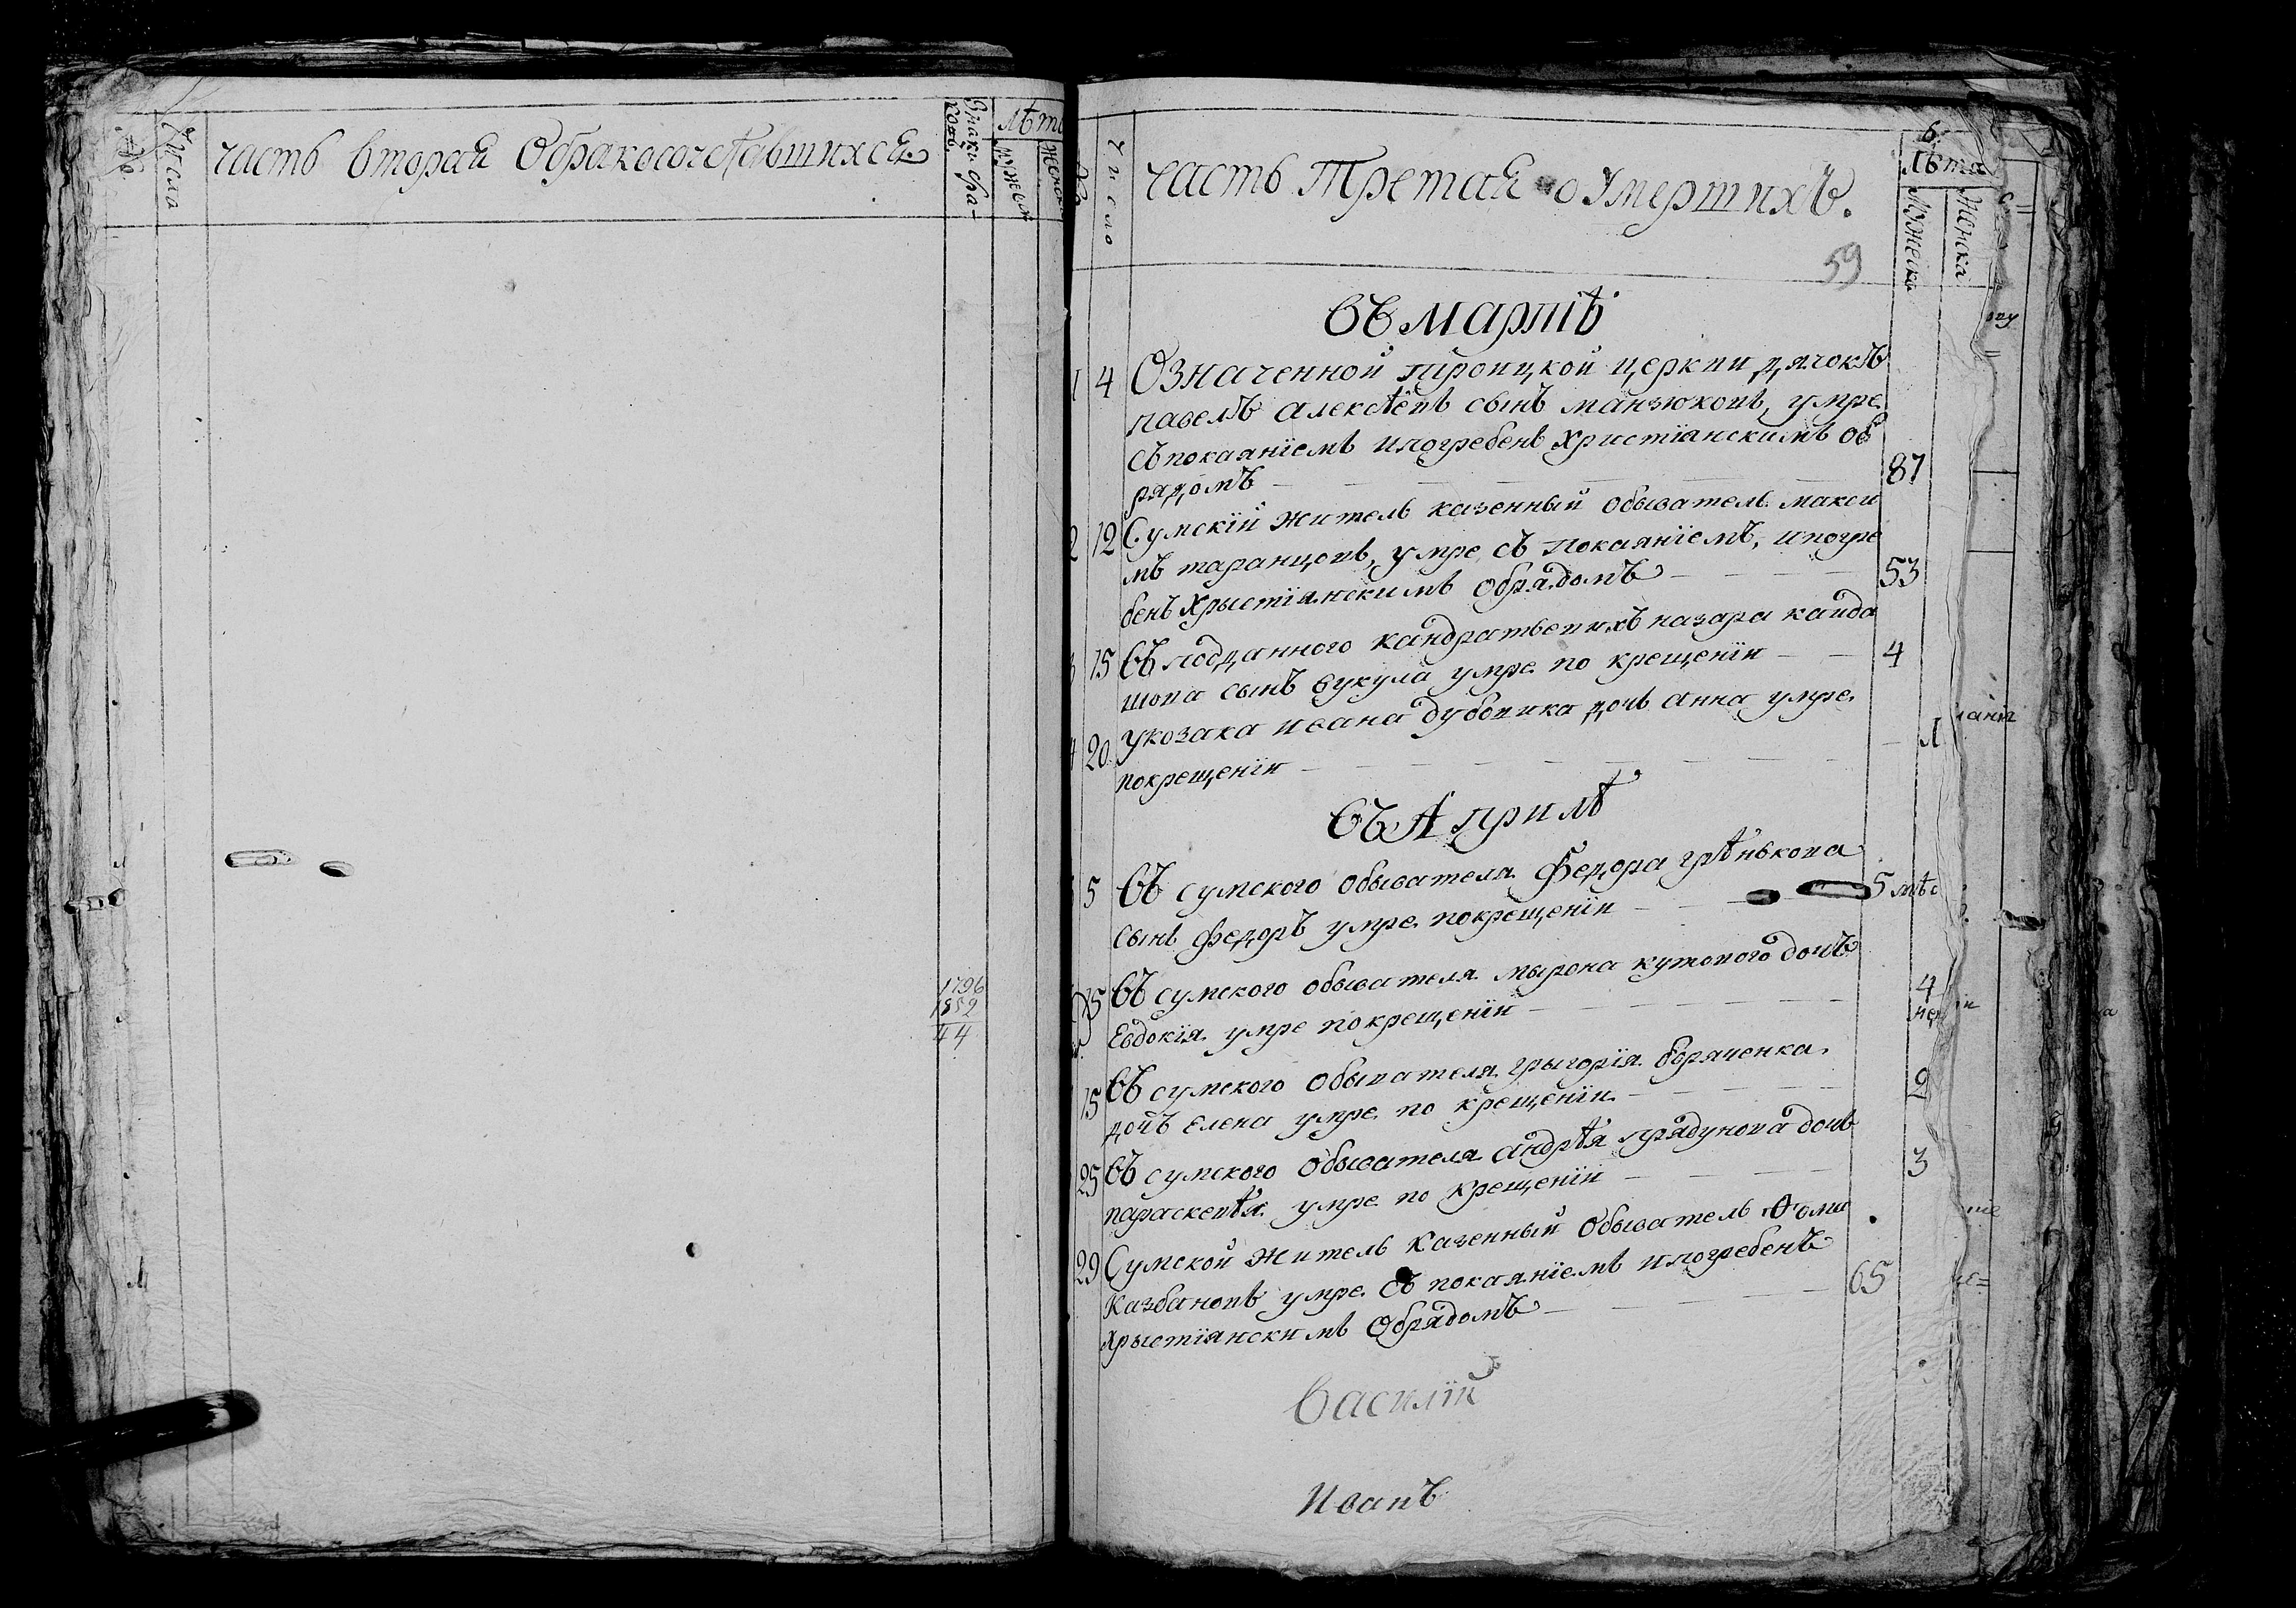 Число
часть вторая О бракосочетавшихся
лѣта
1796
1852
44
Число
часть Третая о умершихъ.
лѣта
Мужеска
Женска
59
въ мартѣ
4 Означенной троицкой церкви дячокъ
павелъ алексѣевъ сынъ манзюковъ, умре
съ покаяніемъ и погребенъ христіянскимъ об
рядомъ 87
2 12 Сумскій житель казенный обыватель макси
мъ таранцовъ, умре съ покаяніемъ, и погре
бенъ хрыстіянскимъ обрядомъ 53
15 въ подданного кандратьевихъ назара кайда
шова сынъ вукула умре по крещеніи 4
20 у козака ивана дубовика дочь анна умре
по крещеніи
въ Априлѣ
5 въ сумского обывателя Федора грѣнькова
сынъ федоръ умре по крещеніи 5 мѣс
15 въ сумского обывателя мырона кутового дочь
Евдокія умре по крещеніи 4 нед
15 въ сумского обывателя грыгорія боряченка
дочь елена умре по крещеніи 2
25 въ сумского обывателя андрѣя прядунова дочь
параскевѣя умре по крещеніи 3
29 Сумской житель казенный обыватель Ѳома
казбановъ умре съ покаяніемъ и погребенъ
хрыстіянскимъ обрядомъ 65
Василій
Иванъ